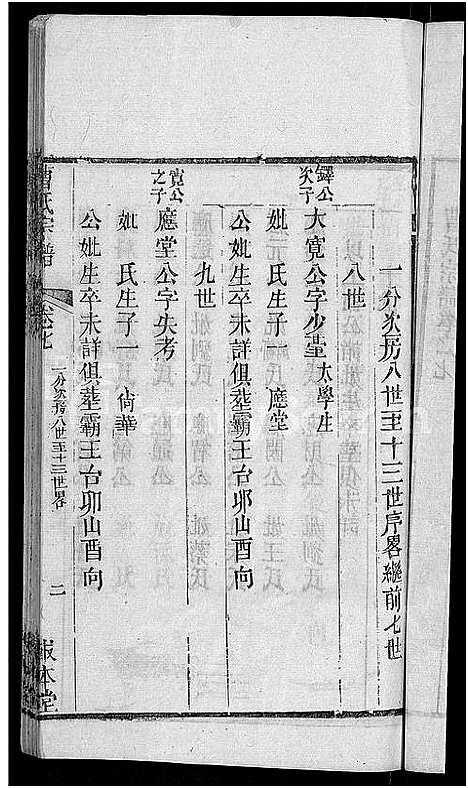 一分次房八世至十三世序畧繼前七世
八世
鐸公次子 大寬公字少堂 太學生
妣元氏生子一 應堂
公妣生卒未詳俱塟霸王台卯山酉向
九世
寬公之子 應堂公字失考
妣 氏生子一 尙華
公妣生卒未詳俱塟霸王台卯山酉向
曹氏宗譜 卷七 一分次房八世至十三世畧 二 敦本堂